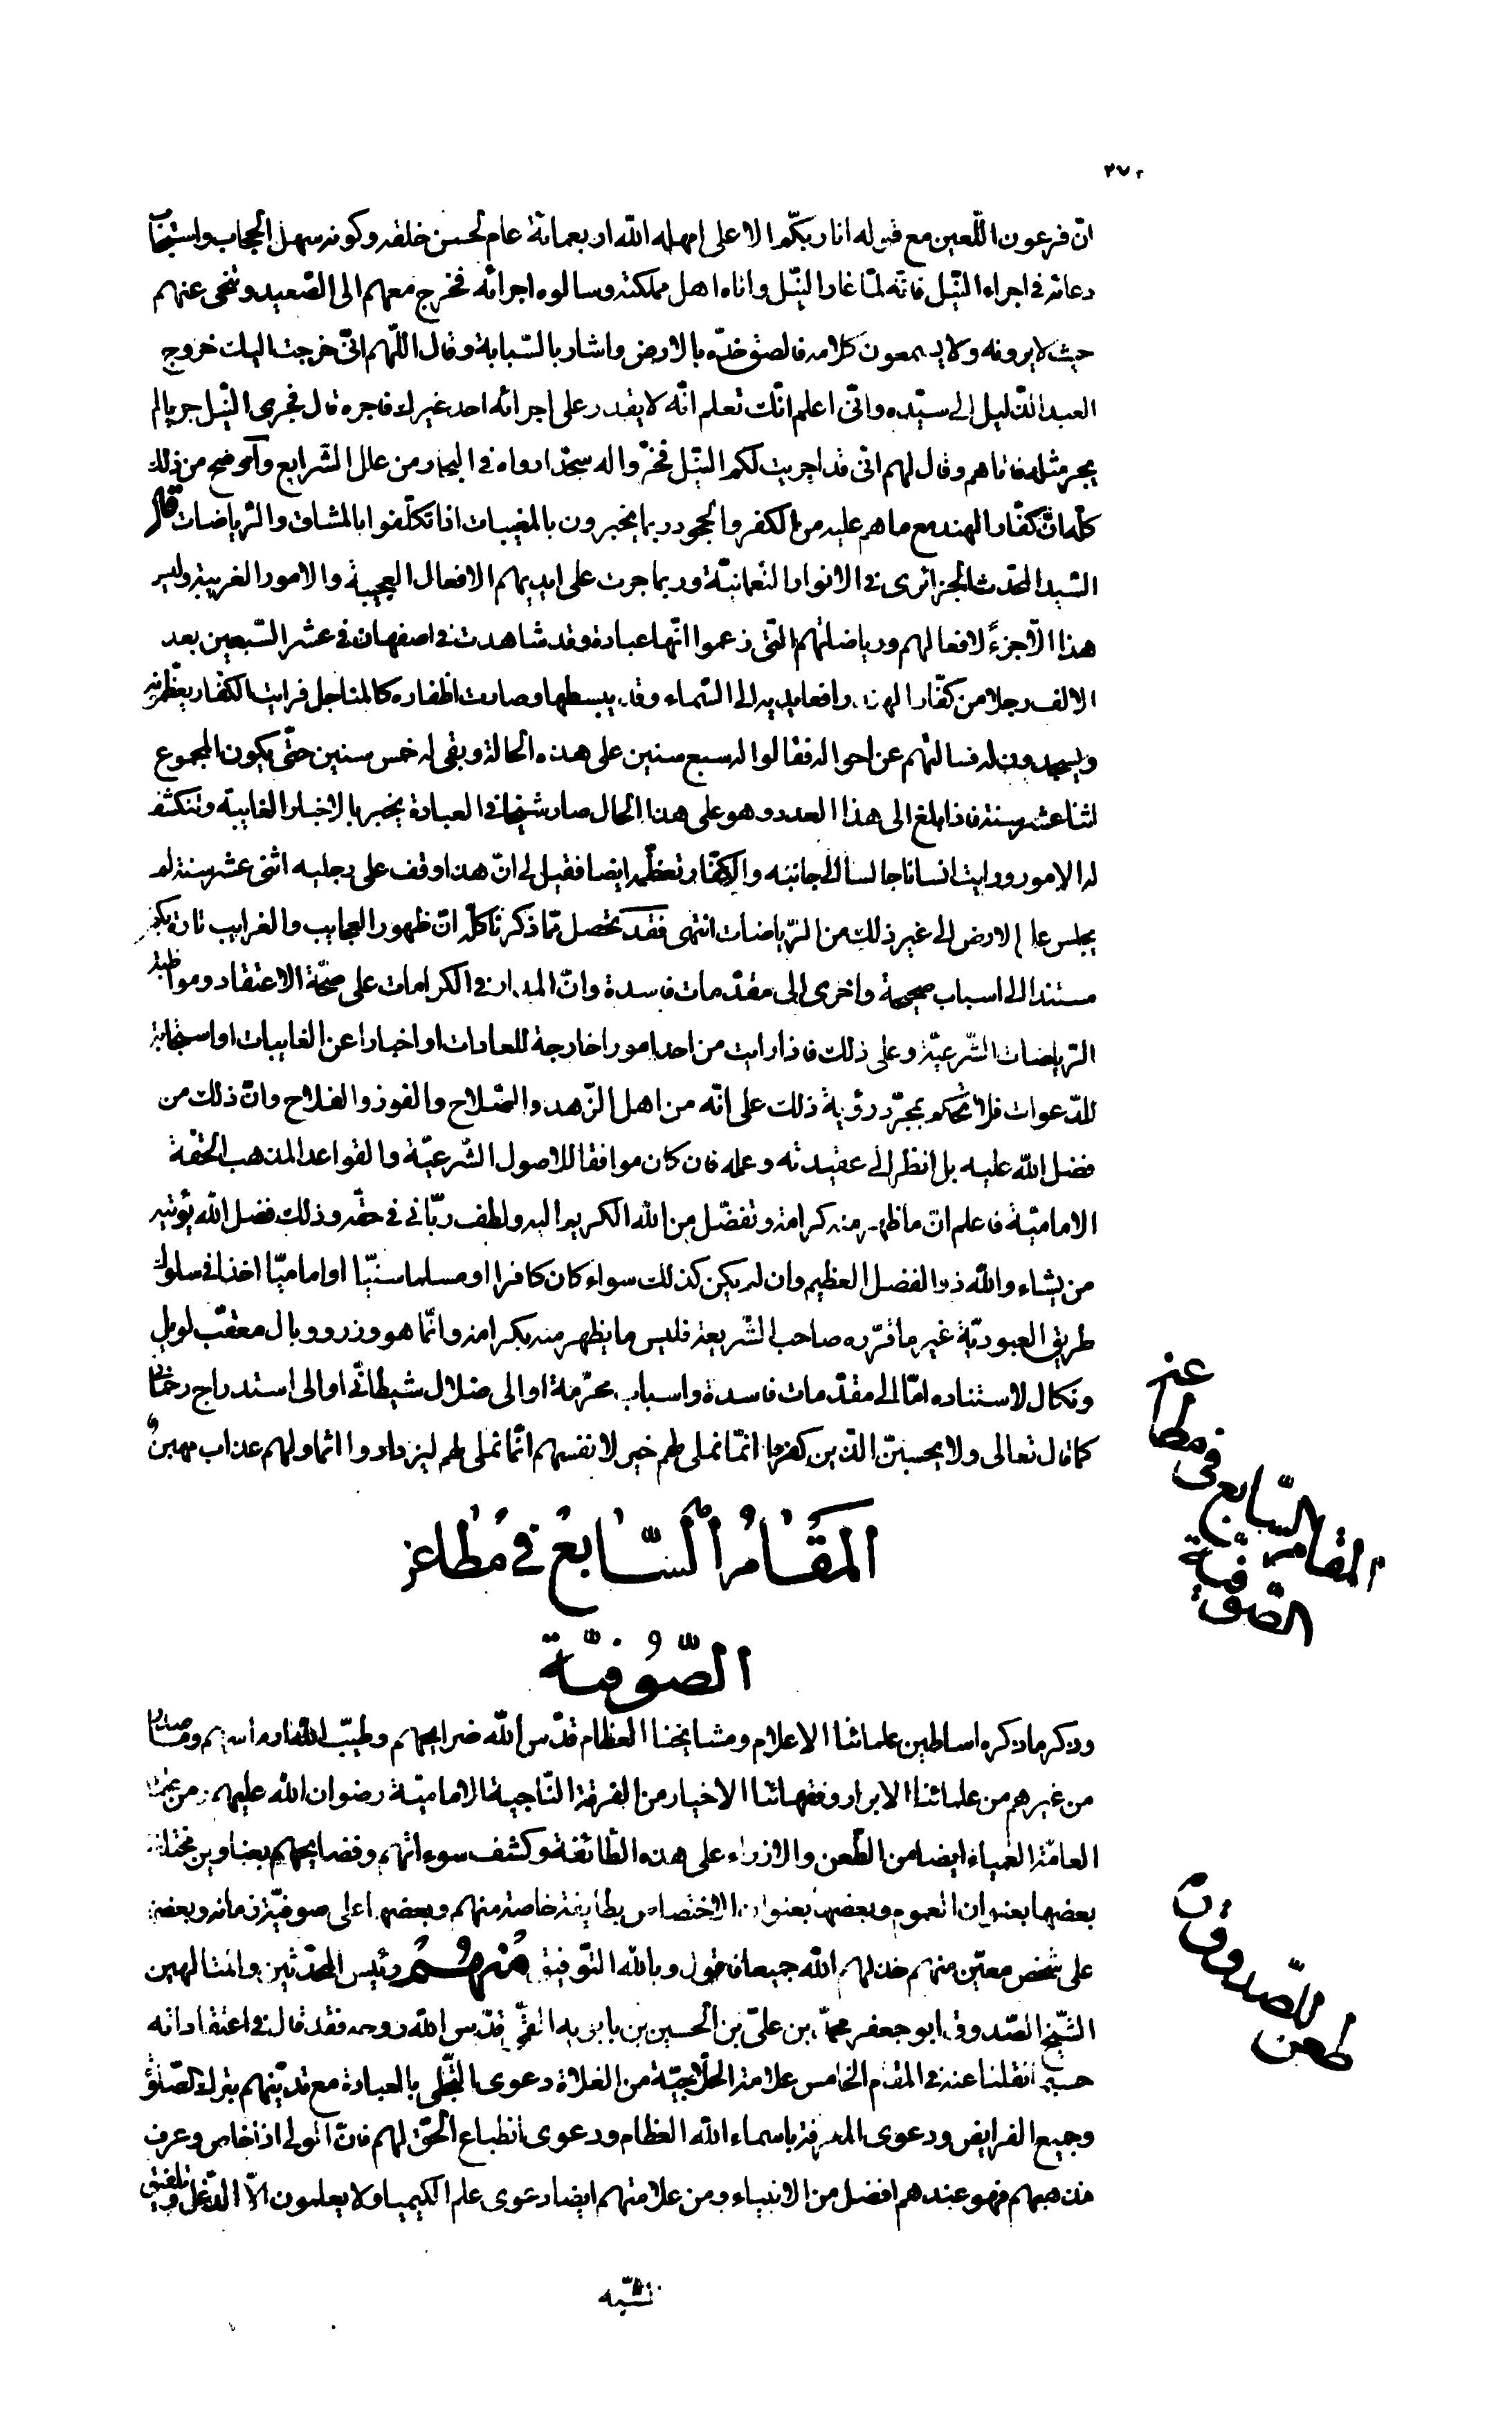 ٢٧٠
انّ فرعون اللّعين مع قوله انا ربكّم الاعلى امهله الله اربعمائة عام لحسن خلقه وكونه سهل الحجاب واستجاب
دعائه فى اجراء النّيل فانّه لمّا غار النّيل واتاه اهل مملكته وسالوه اجرائه فخرج معهم الى الصّعيد وتنحى عنهم
حيث لا يرونه ولا يسمعون كلامه فالصق خدّه بالارض واشار بالسّبابة وقال اللّهم انّى خرجت اليك خروج
العبد الذّليل الى سيّده وانّى اعلم انّك تعلم انّه لا يقدر على اجرائه احد غيرك فاجره قال فجرى النّيل جريا لم
يجر مثله فاتاهم وقال لهم انّى قد اجريت لكم النّيل فخرّوا له سجّدا رواه فى البحار من علل الشّرايع واوضح من ذلك
كلّه انّ كفّار الهند مع ما هم عليه من الكفر والجحود ربما يخبرون بالمغيبات اذا تكلّفوا بالمشاق والرّياضات قال
السّيد المحدّث الجزائرى فى الانوار النّعمانيّة وربما جرت على ايديهم الافعال العجيبة والامور الغريبة وليس
هذا الّا جزءً لافعالهم ورياضاتهم الّتى زعموا انّها عبادة وقد شاهدت فى اصفهان فى عشر السّبعين بعد
الالف رجلا من كفّار الهند رافعا يديه الى السّماء وقد يبسطها وصارت اظفاره كالمناجل فرايت الكفّار يعظّمونه
ويسجدون له فسالتهم عن احواله فقالوا له سبع سنين على هذه الحالة وبقى له خمس سنين حتّى يكون المجموع
اثنا عشر سنة فاذا بلغ الى هذا العدد وهو على هذا الحال صار شيخا فى العبادة يخبر بالاخبار الغايبة وتنكشف
له الامور ورايت انسانا جالسا الى جانبه والكفّار تعظّمه ايضا فقيل لى انّ هذا وقف على رجليه اثنى عشر سنة لم
يجلس على الارض الى غير ذلك من الرّياضات انتهى فقد تحصل ممّا ذكرنا كلّه انّ ظهور العجايب والغرايب تارة يكون
مستندا الى اسباب صحيحة واخرى الى مقدّمات فاسدة وانّ المدار فى الكرامات على صحّة الاعتقاد ومواظبة
الرّياضات الشّرعيّة وعلى ذلك فاذا رايت من احد امورا خارجة للعادات او اخبارا عن الغايبات او استجابة
للدّعوات فلا تحكم بمجرّد رؤية ذلك على انّه من اهل الزّهد والصّلاح والفوز والفلاح وانّ ذلك من
فضل الله عليه بل انظر الى عقيدته وعمله فان كان موافقا للاصول الشّرعيّة والقواعد المذهب الحقّة
الاماميّة فاعلم انّ ما ظهر منه كرامة وتفضّل من الله الكريم اليه ولطف ربّانى فى حقّه وذلك فضل الله يؤتيه
من يشاء والله ذو الفضل العظيم وان لم يكن كذلك سواء كان كافرا او مسلما سنيّا او اماميّا اخذا فى سلوك
طريق العبوديّة غير ما قرّره صاحب الشّريعة فليس ما يظهر منه بكرامة وانّما هو وزر ووبال معقّب لويل
ونكال لاستناده امّا الى مقدّمات فاسدة واسباب محرّمة او الى ضلال شيطانّى او الى استدراج رحمانى
كما قال تعالى ولا يحسبنّ الذّين كفروا انمّا نملى لهم خير لانفسهم انّما نملى لهم ليزدادوا اثما ولهم عذاب مهين
المقام السّابع فى مطاعن
الصّوفيّة
عن
المقام السّابع فى مطا
الصّوفيّة
وذكر ما ذكره اساطين علمائنا الاعلام ومشايخنا العظام قدّس الله ضرايحهم وطيّب الله ارماسهم وما صدر
من غيرهم من علمائنا الابرار وفقهائنا الاخيار من الفرقة النّاجية الاماميّة رضوان الله عليهم ومن
العامّة العمياء ايضا من الطّعن والازراء على هذه الطّائفة وكشف سوءاتهم وفضايحهم بعناوين مختلفة
بعضها بعنوان العموم وبعضها بعنوان الاختصاص بطايفة خاصة منهم وبعضها على صوفيّة زمانه وبعضها
على شخص معيّن منهم خذلهم الله جميعا فاقول وبالله التّوفيق منهم رئيس المحدّثين والمتالهين
طعن الصّدوق
الشّيخ الصّدوق ابو جعفر محمّد بن علىّ بن الحسين بن بابويه القمّى قدّس الله روحه فقد قال فى اعتقاداته
حسبما نقلنا عنه فى المقام الخامس علامة الحلّاجيّة من الغلاة دعوى التّجلّى بالعبادة مع تديّنهم بترك الصّلوة
وجميع الفرايض ودعوى المعرفة باسماء الله العظام ودعوى انطباع الحّق لهم فانّ الولى اذا خلص وعرف
مذهبهم فهو عندهم افضل من الانبياء ومن علامتهم ايضا دعوى علم الكيميا ولا يعلمون الّا الدّغل وتلفيق